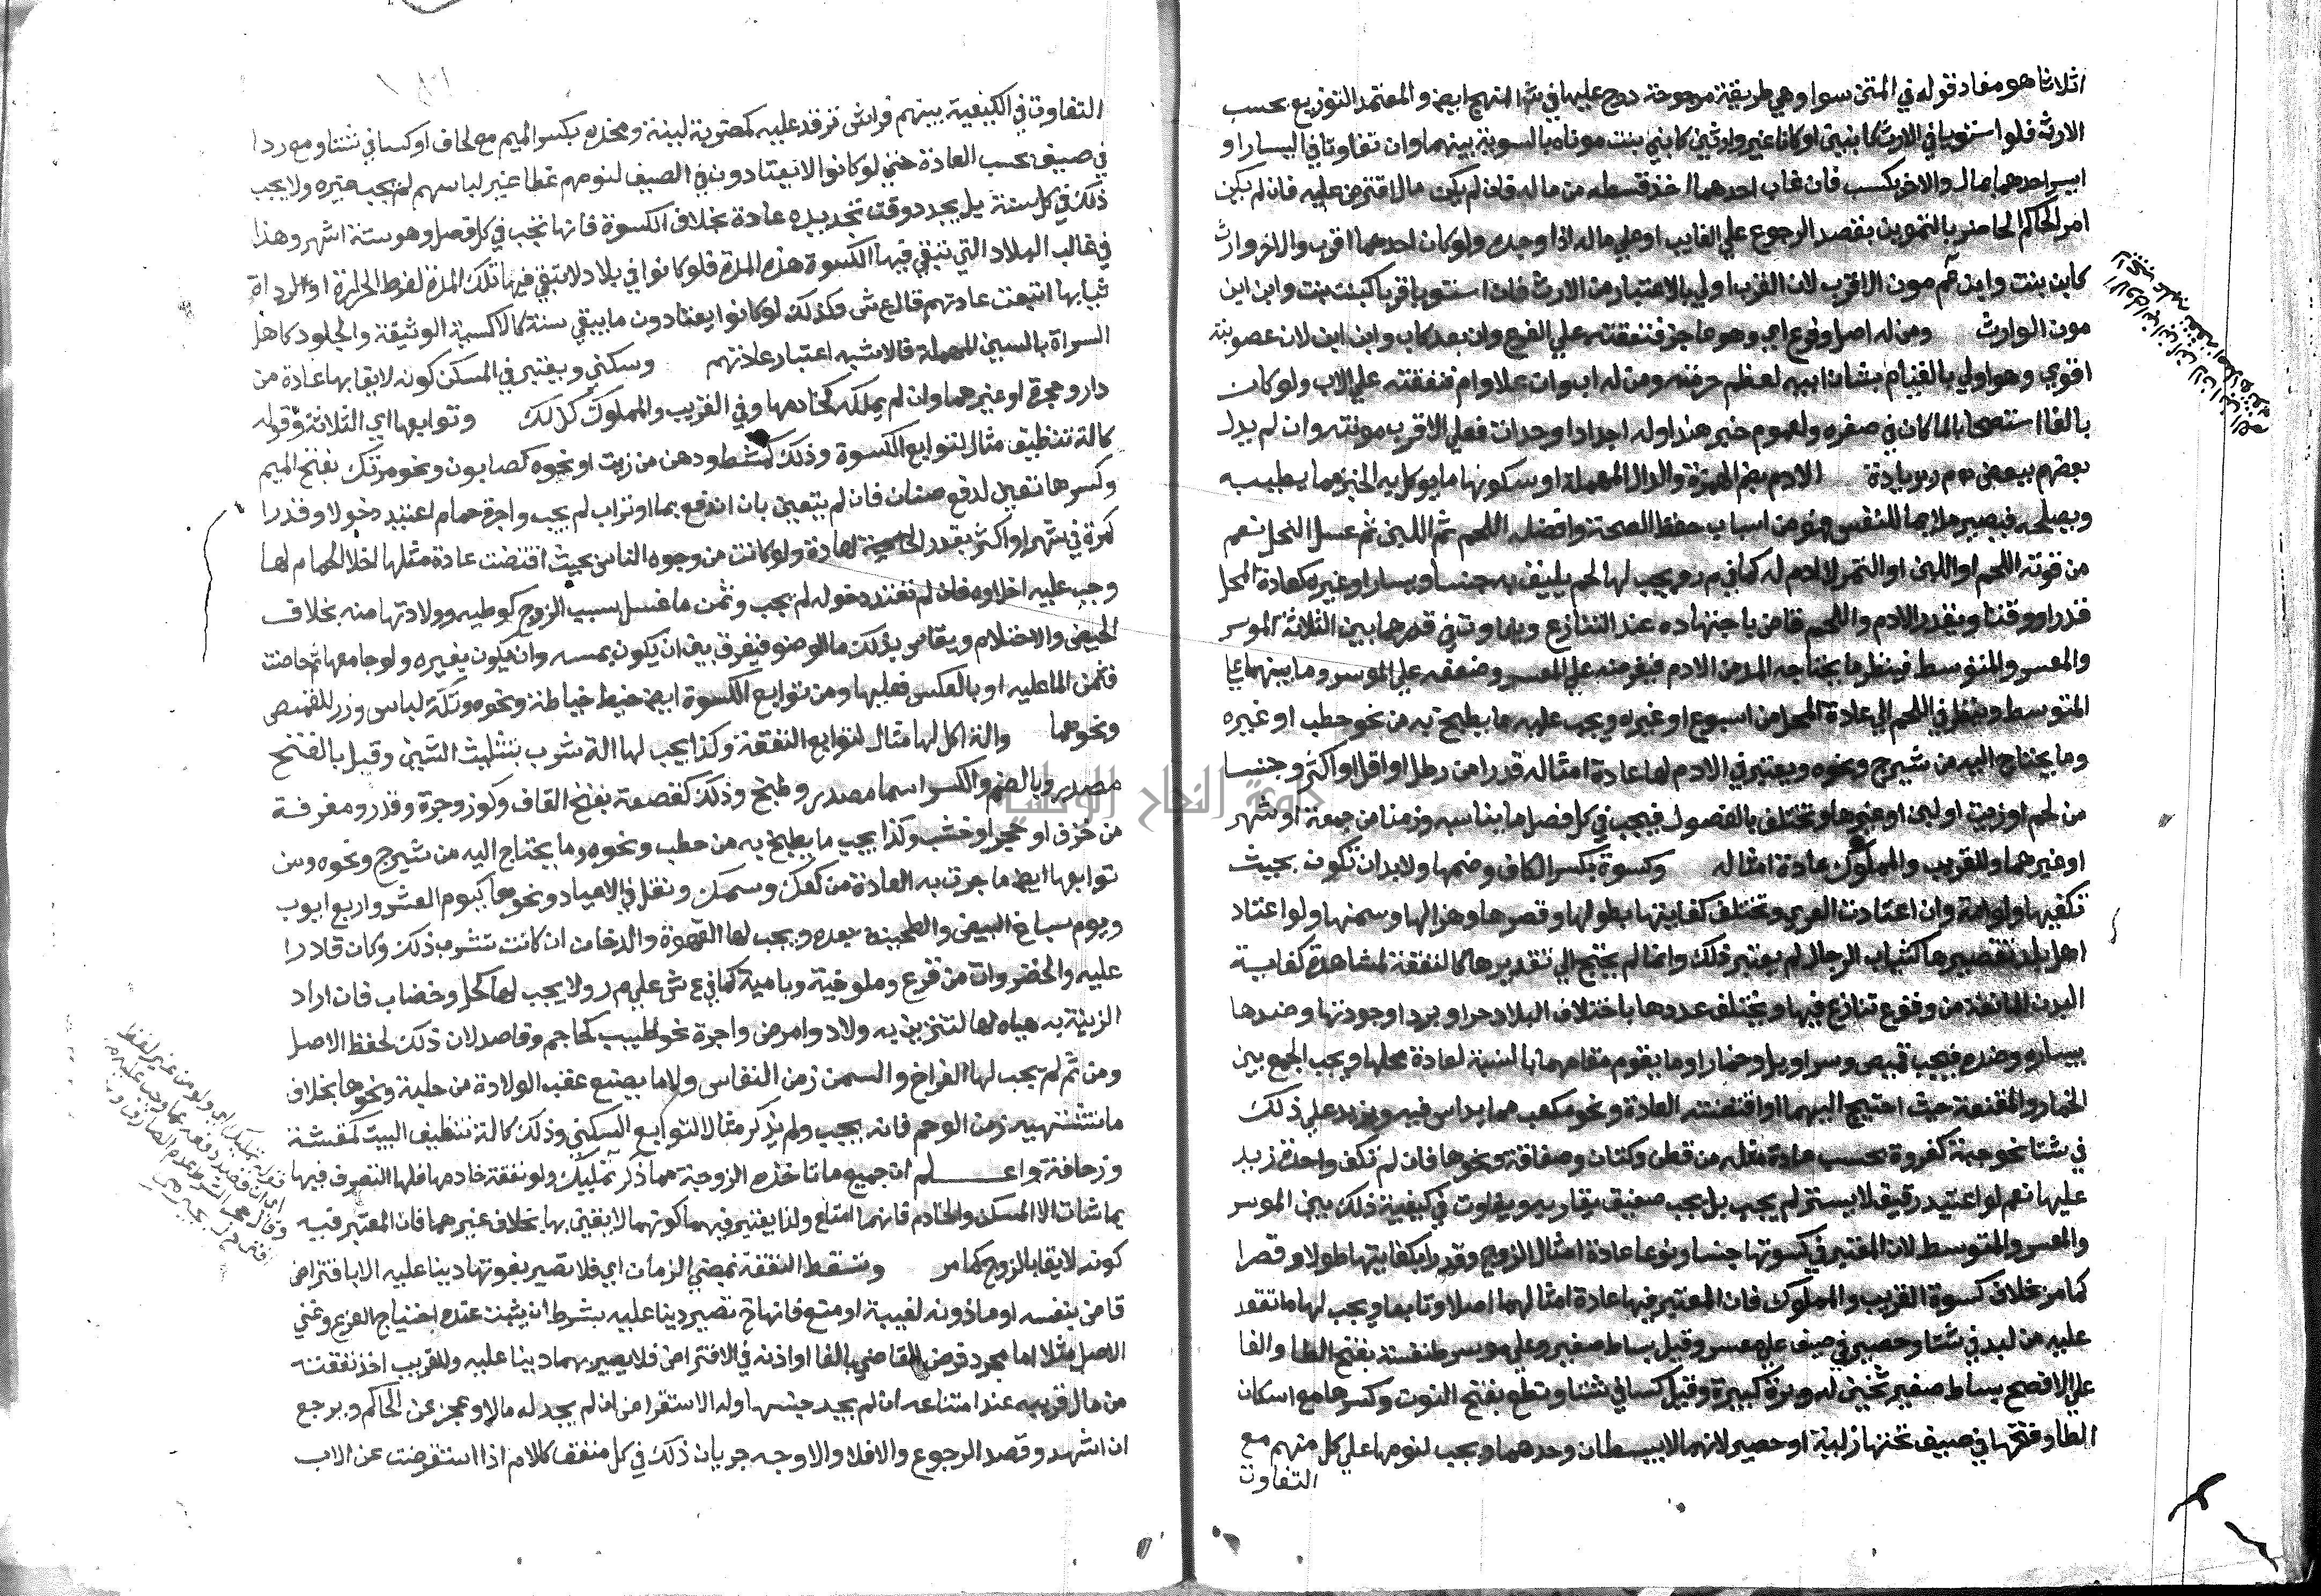 اثلاثا هو مفاد قوله في المتن سوا وهي طريقة مرجوحة درج عليها في المنهج ايضا والمعتمد التوزيع بحسب
الارث فلو استويا في الارث كابنين او كانا غير وارثين كابني بنت موناه بالسوية بينهما وان تفاوتا في اليسار او
ايسر احدهما بمال والاخر بكسب فان غاب احدهما اخذ قسطه من ماله فان لم يكن مال اقترض عليه فان لم يكن
امر الحاكم الحاضر بالتموين بقصد الرجوع علي الغايب او علي ماله اذا وجده ولو كان احدهما اقرب والاخر وارث
كابن بنت وابن عم مون الاقرب لان القرب اولي بالاعتبار من الارث فان استويا قربا كبنت بنت وابن ابن
مون الوارث ومن له اصل وفرع اي وهو عاجز فنفقته علي الفرع وان بعد كاب وابن ابن لان عصوبته
اقوي وهو اولي بالقيام بشان ابيه لعظم حرمته ومن له اب وان علا وام فنفقته علي الاب ولو كان
بالغا استصحابا لما كان في صغره ولعموم خبر هند اوله اجداد او جدات فعلي الاقرب مونته وان لم يدل
بعضهم ببعض م ر بزيادة الادم بضم الهمزة والدال المهملة او سكونها ما يوكل به الخبز مما يطيبه
ويصلحه فيصير ملايما للنفس فهو من اسباب حفظ الصحة وافضله اللحم ثم اللبن ثم عسل النحل نعم
من قوته اللحم او اللبن او التمر لا ادم له كما في م ر ويجب لها لحم يليق به جنسا ويسارا وغيره كعادة المحل
قدرا ووقتا ويقدر الادم واللحم قاض باجتهاده عند التنازع ويفاوت في قدرهما بين الثلاثة الموسر
والمعسر والمتوسط فينظر ما يحتاجه المد من الادم فيفرضه علي المعسر وضعفه علي الموسر وما بينهما علي
المتوسط وينظر في اللحم الي عادة المحل من اسبوع او غيره ويجب عليه ما يطبخ به من نحو حطب او غيره
وما يحتاج اليه من شيرج ونحوه ويعتبر في الادم لها عادة امثاله قدرا من رطل او اقل او اكثر وجنسا
من لحم او زيت او لبن او غيرها وتختلف بالفصول فيجب في كل فصل ما يناسبه وزمنا من جمعة او شهر
او غيرهما وللقريب والمملوك عادة امثاله وكسوة بكسر الكاف وضمها ولا بد ان تكون بحيث
تكفيها ولو امة وان اعتادت العري وتختلف كفايتها بطولها وقصرها وهزالها وسمنها ولو اعتاد
اهل بلد تقصيرها كثياب الرجال لم يعتبر ذلك وانما لم يحتج الي تقديرها كالنفقة لمشاهدة كفاية
البدن المانعة من وقوع تنازع فيها ويختلف عددها باختلاف البلاد حرا وبردا وجودتها وضدها
بيساره وضده فيجب قميص وسراويل وخمار او ما يقوم مقامهما بالنسبة لعادة محلها ويجب الجمع بين
الخمار والمقنعة حيث احتيج اليهما او اقتضته العادة ونحو مكعب مما يداس فيه ويزيد علي ذلك
في شتا نحو جبة كفروة بحسب عادة مثله من قطن وكتان وصفاقة ونحوها فان لم تكف واحدة زيد
عليها نعم لو اعتيد رقيق لا يستر لم يجب بل يجب صفيق يقاربه ويفاوت في كيفية ذلك بين الموسر
والمعسر والمتوسط لان المعتبر في كسوتها جنسا ونوعا عادة امثال الزوج وقدرا بكفايتها طولا وقصرا
كما مر بخلاف كسوة القريب والمملوك فان المعتبر فيها عادة امثالهما اصلا وتابعا ويجب لها ما تقعد
عليه من لبد في شتا وحصير في صيف علي معسر وقيل بساط صغير وعلي موسر طنفسة بفتح الطا والفا
علي الافصح بساط صغير ثخين له وبرة كبيرة وقيل كسا في شتا ونطع بفتح النون وكسرها مع اسكان
الطا وفتحها في صيف تحتها زلية او حصير لانهما لا يبسطان وحدهما ويجب لنومها علي كل منهم مع
التفاوت
التفاوت في الكيفية بينهم فراش ترقد عليه كمضربة لينة ومخدة بكسر الميم مع لحاف او كسا في شتا ومع ردا
في صيف بحسب العادة حتي لو كانوا لا يعتادون في الصيف لنومهم غطا غير لباسهم لم يجب غيره ولا يجب
ذلك في كل سنة بل يجدد وقت تجديده عادة بخلاف الكسوة فانها تجب في كل فصل وهو ستة اشهر وهذا
في غالب البلاد التي تبقي فيها الكسوة هذه المدة فلو كانوا في بلاد لا تبقي فيها تلك المدة لفرط الحرارة او لرداة
ثيابها اتبعت عادتهم قال ع ش وكذلك لو كانوا يعتادون ما يبقي سنة كالاكسية الوثيقة والجلود كاهل
السراة بالسين المهملة فالاشبه اعتبار عادتهم وسكني ويعتبر في المسكن كونه لايقا بها عادة من
دار وحجرة او غيرهما وان لم يملكه كخادمها وفي القريب والمملوك كذلك وتوابعها اي الثلاثة وقوله
كالة تنظيف مثال لتوابع الكسوة وذلك كمشط ودهن من زيت او نحوه كصابون ونحو مرتك بفتح الميم
وكسرها تعين لدفع صنان فان لم يتعين بان اندفع بما او تراب لم يجب واجرة حمام اعتيد دخولا وقدرا
كمرة في شهر او اكثر بقدر العادة ولو كانت من وجوه الناس بحيث اقتضت عادة مثلها اخلا الحمام لها
وجب عليه اخلاوه فان لم تعتد دخوله لم يجب وثمن ما غسل بسبب الزوج كوطيه وولادتها منه بخلاف
الحيض والاحتلام ويقاس بذلك ما الوضو فيفرق بين ان يكون بمسه وان يكون بغيره ولو جامعها ثم حاضت
فثمن الما عليه او بالعكس فعليها ومن توابع الكسوة ايضا خيط خياطة ونحوه وتكة لباس وزر للقميص
ونحوهما والة اكل لها مثال لتوابع النفقة وكذا يجب لها الة شرب بتثليث الشين وقيل بالفتح
مصدر وبالضم والكسر اسما مصدر وطبخ وذلك كقصعة بفتح القاف وكوز وجرة وقدر ومغرفة
من خزف او حجر او خشب وكذا يجب ما يطبخ به من حطب ونحوه وما يحتاج اليه من شيرج ونحوه ومن
توابعها ايضا ما جرت به العادة من كعك وسمك ونقل في الاعياد ونحوها كيوم العشر واربع ايوب
ويوم سباغ البيض والطحينة بعده ويجب لها القهوة والدخان ان كانت تشرب ذلك وكان قادرا
عليه والخضروات من قرع وملوخية وبامية كما في ع ش علي م ر ولا يجب لها كحل وخضاب فان اراد
الزينة به هياه لها لتتزين به ولا دوا مرض واجرة نحو طبيب كحاجم وفاصد لان ذلك لحفظ الاصل
ومن ثم لم يجب لها الفراخ والسمن زمن النفاس ولا ما يصنع عقب الولادة من حلبة ونحوها بخلاف
ما تشتهيه زمن الوحم فانه يجب ولم يذكر مثالا لتوابع السكني وذلك كالة تنظيف البيت كمقشة
وزحافة واعلم ان جميع ما تاخذه الزوجة مما ذكر تمليك ولو نفقة خادمها فلها التصرف فيها
بما شات الا المسكن والخادم فانهما امتاع ولذا يعتبر فيهما كونهما لايقين بها بخلاف غيرهما فان المعتبر فيه
كونه لايقا بالزوج كما مر وتسقط النفقة بمضي الزمان اي فلا تصير بفوتها دينا عليه الا باقتراض
قاض بنفسه او ماذونه لغيبة او منع فانها ح تصير دينا عليه بشرط ان يثبت عنده احتياج الفرع وغني
الاصل مثلا اما مجرد فرض القاضي بالفا او اذنه في الاقتراض فلا يصير بهما دينا عليه وللقريب اخذ نفقته
من مال قريبه عند امتناعه ان لم يجد جنسها وله الاستقراض ان لم يجد له مالا وعجز عن الحاكم ويرجع
ان اشهد وقصد الرجوع والا فلا والاوجه جريان ذلك في كل منفق كالام اذا استقرضت عن الاب
جامعة النجاح الوطنية